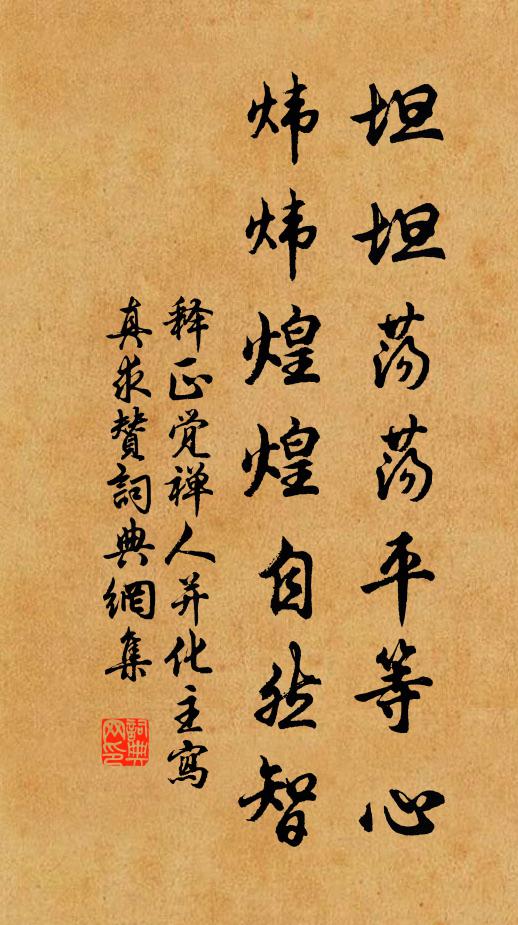 坦坦荡荡平等心
炜炜煌煌自然智
释正觉禅人并化主寫
真求赞詞典網集
詞典網印